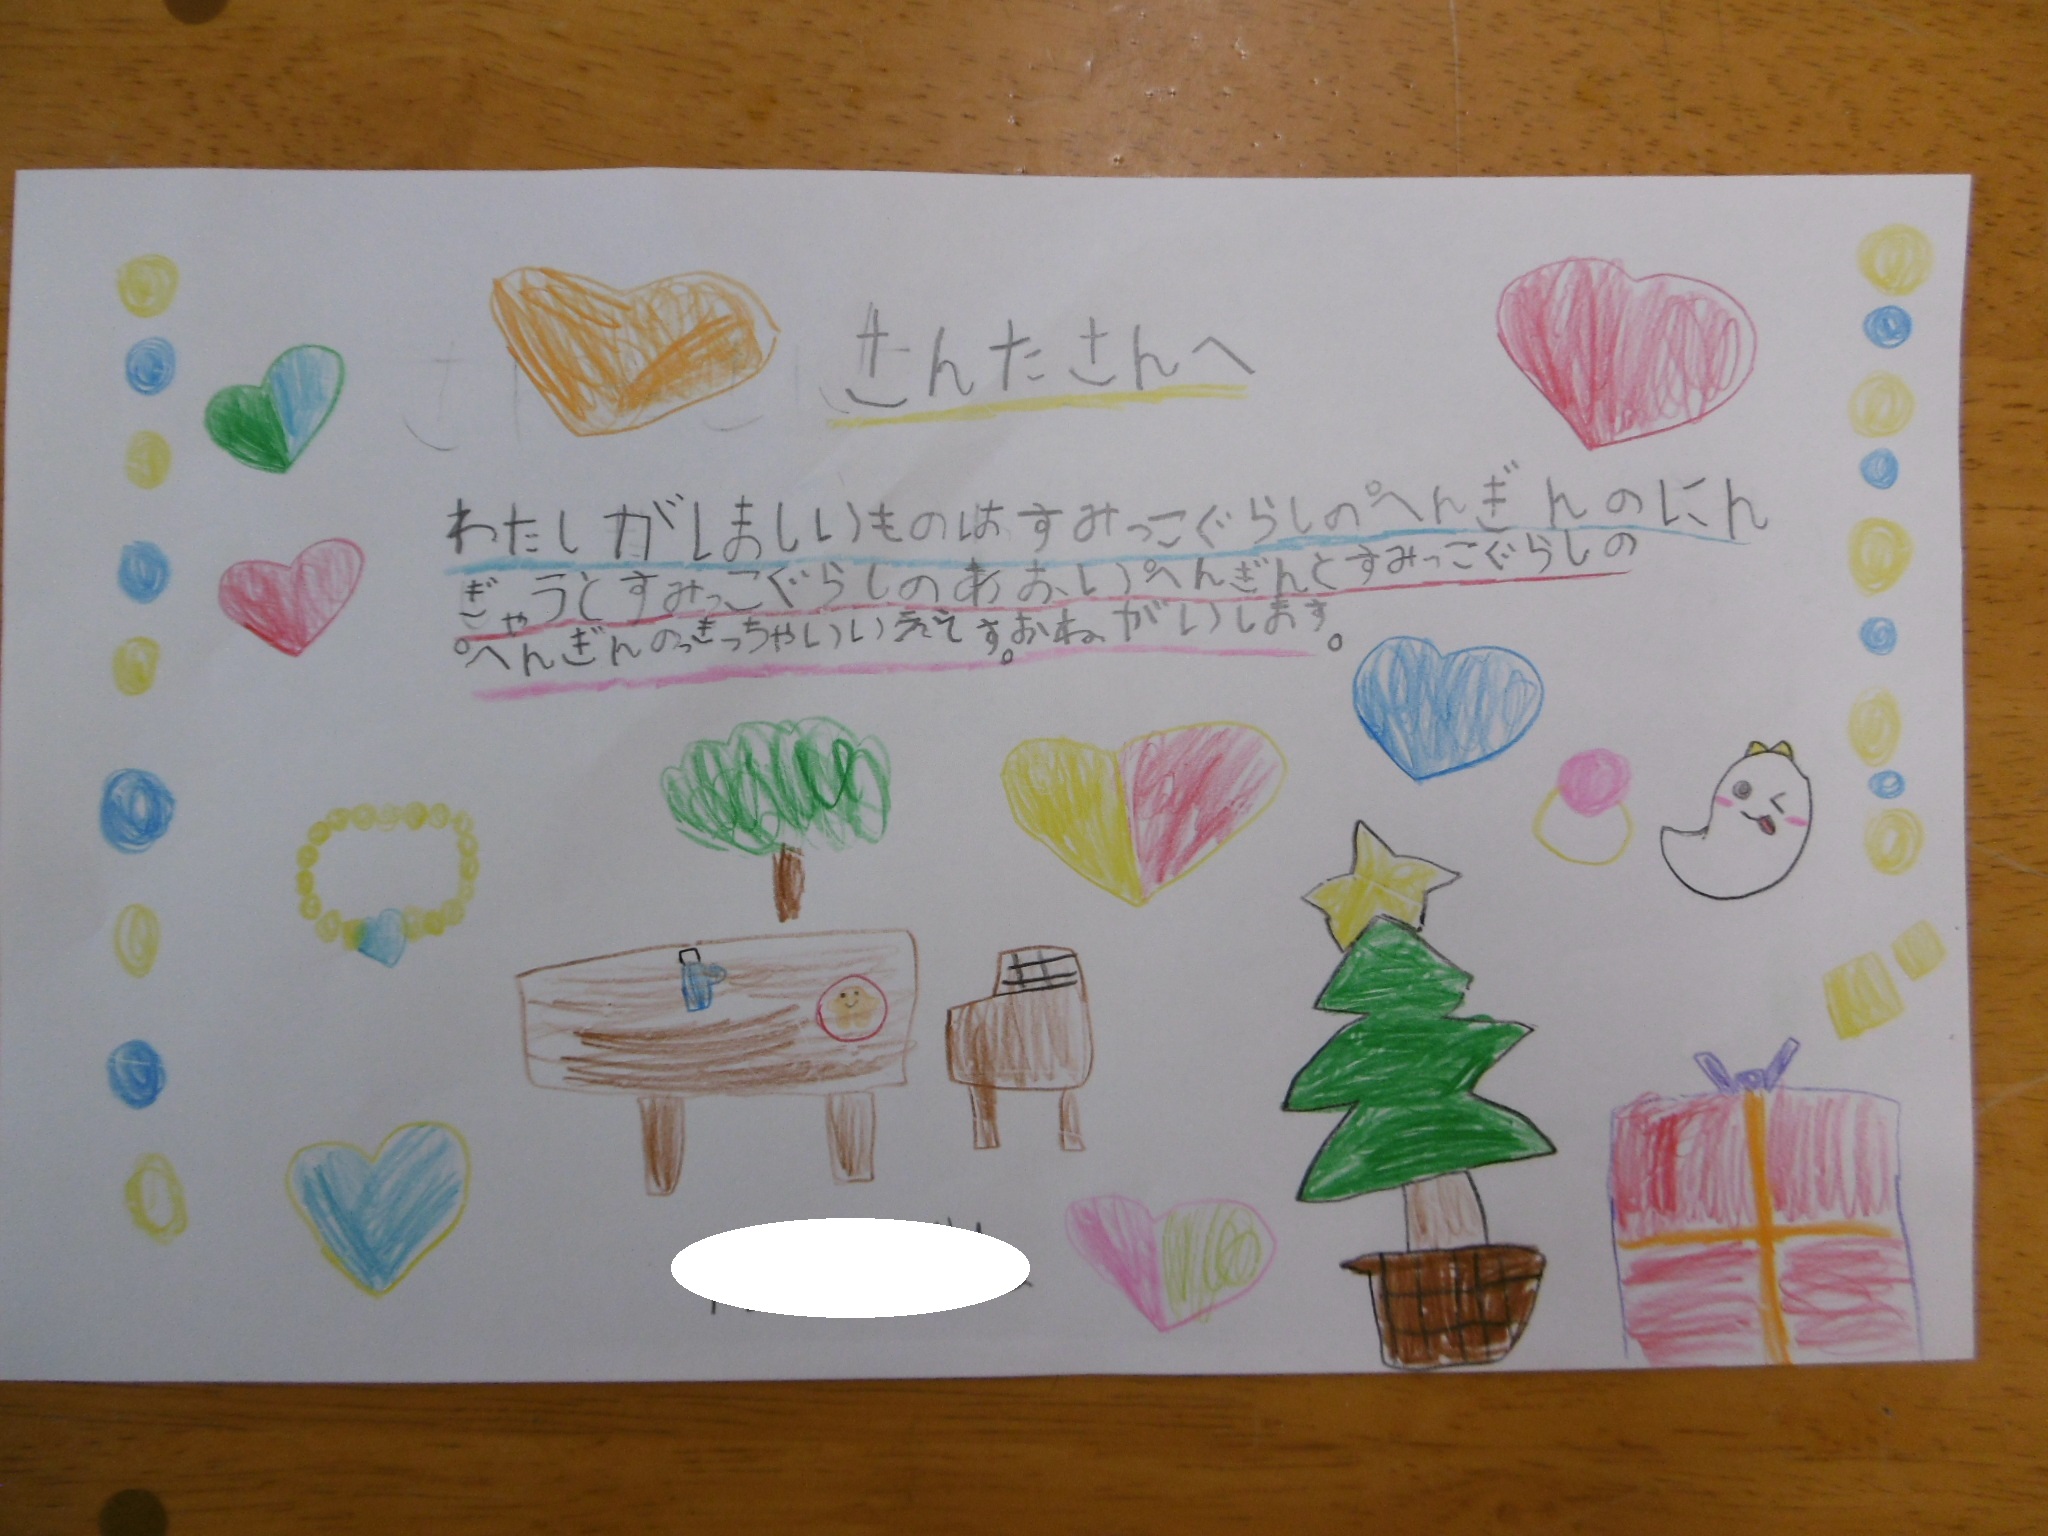 さんたさんへ
わたしがほしいものはすみっこぐらしのぺんぎんのにん
ぎょうとすみっこぐらしのあおいぺんぎんとすみっこぐらしの
ぺんぎんの
おねがいします。